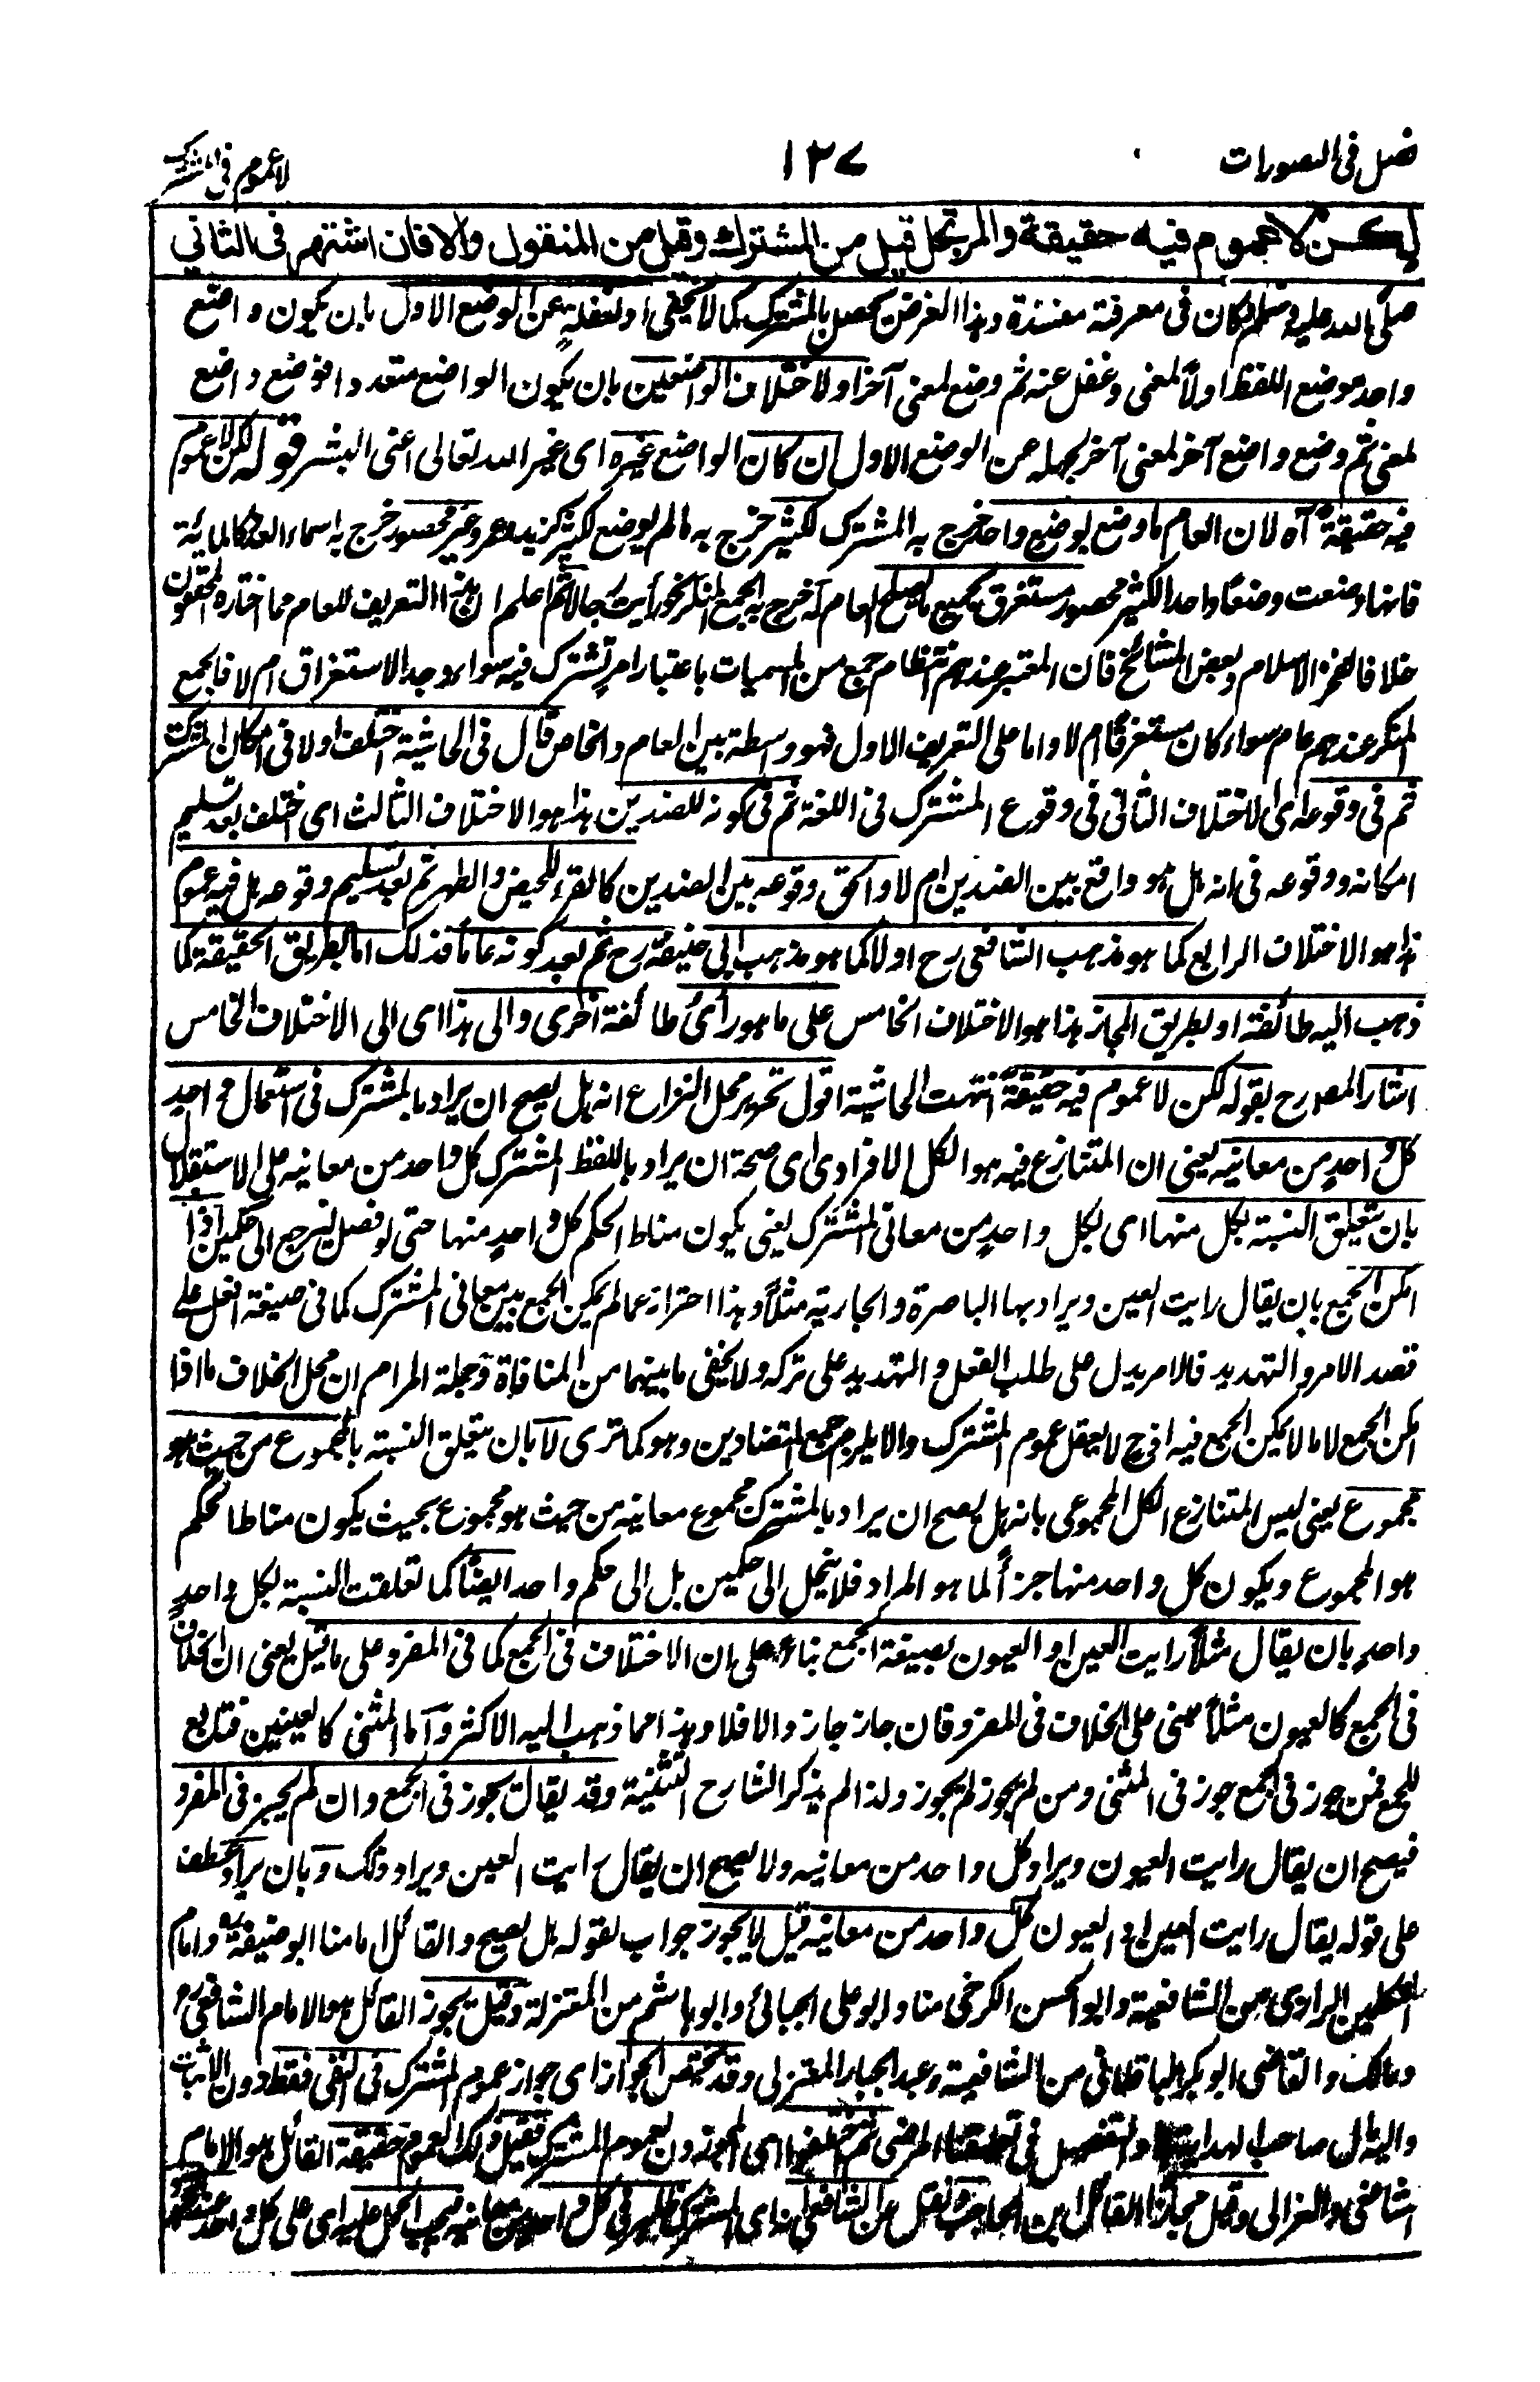 فصل فى التصورات
١٢٧
لا عموم فى المشترك
لكن لا عموم فيه حقيقة والمرتجل قيل من المشترك وقيل من المنقول والا فان اشتهر فى الثانى
صلى الله عليه وسلم لكان فى معرفته مفسدة وهذا الغرض يحصل بالمشترك كما لا يخفى او لغفلة عن الوضع الاول بان يكون واضع
واحد موضع اللفظ اولاً لمعنى وغفل عنه ثم وضع لمعنى آخر او لاختلاف الواضعين بان يكون الواضع متعددا فوضع واضع
لمعنى ثم وضع واضع آخر لمعنى آخر لجهله عن الوضع الاول ان كان الواضع غيره اى غير الله تعالى اعنى البشر قوله لكن لا عموم
فيه حقيقة آه لان العام ما وضع بوضع واحد خرج به المشترك لكثير خرج به ما لم يوضع لكثير كزيد وعمرو غير محصور خرج به اسماء العدد كالمائة
فانها وضعت وضعا واحدا لكثير محصور مستغرق لجميع ما يصلح له خرج به الجمع المنكر نحو رأيت رجالا ثم اعلم ان هذا التعريف للعام مما اختاره المحققون
خلافا لفخر الاسلام وبعض المشائخ فان المعتبر عندهم انتظام جمع من المسميات باعتبار امر تشترك فيه سواء وجد الاستغراق ام لا فالجمع
المنكر عندهم عام سواء كان مستغرقا ام لا واما على التعريف الاول فهو واسطة بين العام والخاص قال فى الحاشية اختلف اولا فى امكان المشترك
ثم فى وقوعه اى الاختلاف الثانى فى وقوع المشترك فى اللغة ثم فى كونه للضدين هذا هو الاختلاف الثالث اى اختلف بعد تسليم
امكانه ووقوعه فى انه هل هو واقع بين الضدين ام لا والحق وقوعه بين الضدين كالقرء للحيض والطهر ثم بعد تسليم وقوعه هل فيه عموم
هذا هو الاختلاف الرابع كما هو مذهب الشافعى رح اولا كما هو مذهب ابى حنيفة رح ثم بعد كونه عاما فذلك اما بطريق الحقيقة كما
ذهب اليه طائفة او بطريق المجاز هذا هو الاختلاف الخامس على ما هو رأى طائفة اخرى والى هذا اى الى الاختلاف الخامس
اشار المص رح بقوله لكن لا عموم فيه حقيقة انتهت الحاشية اقول تحرير محل النزاع انه هل يصح ان يراد بالمشترك فى استعمال واحد
كل واحد من معانيه يعنى ان المتنازع فيه هو الكل الافرادى اى صحة ان يراد باللفظ المشترك كل واحد من معانيه على الاستقلال
بان تتعلق النسبة بكل منها اى بكل واحد من معانى المشترك يعنى يكون مناط الحكم كل واحد منها حتى لو فصل يرجع الى حكمين اذا
امكن الجمع بان يقال رايت العين ويراد بها الباصرة والجارية مثلاً وهذا احتراز عما لم يمكن الجمع بين معانى المشترك كما فى صيغة افعل على
قصد الامر والتهديد فالامر يدل على طلب الفعل والتهديد على تركه ولا يخفى ما بينهما من المنافاة وجملة المرام ان محل الخلاف ما اذا
امكن الجمع لا ما لا يمكن الجمع فيه اذ ح لا يعقل عموم المشترك والا يلزم جمع المتضادين وهو كما ترى لا بان تتعلق النسبة بالمجموع من حيث هو
مجموع يعنى ليس المتنازع الكل المجموعى بانه هل يصح ان يراد بالمشترك مجموع معانيه من حيث هو مجموع بحيث يكون مناط الحكم
هو المجموع ويكون كل واحد منها جزأً لما هو المراد فلا ينحل الى حكمين بل الى حكم واحد ايضا كما تعلقت النسبة بكل واحد
واحد بان يقال مثلاً رايت العين او العيون بصيغة الجمع بناء على ان الاختلاف فى الجمع كما فى المفرد على ما قيل يعنى ان الخلاف
فى الجمع كالعيون مثلاً مبنى على الخلاف فى المفرد فان جاز جاز والا فلا وهذا مما ذهب اليه الاكثر واما المثنى كالعينين فتابع
للجمع فمن جوز فى الجمع جوز فى المثنى ومن لم يجوز لم يجوز ولذا لم يذكر الشارح التثنية وقد يقال يجوز فى الجمع وان لم يجز فى المفرد
فيصح ان يقال رايت العيون ويراد كل واحد من معانيه ولا يصح ان يقال رايت العين ويراد ذلك وبان يراد عطف
على قوله يقال رايت العين او العيون كل واحد من معانيه قيل لا يجوز جواب لقوله هل يصح والقائل امامنا ابو حنيفة رح وامام
المتكلمين الرازى من الشافعية وابو الحسن الكرخى منا وابو على الجبائى وابو هاشم من المعتزلة وقيل يجوز القائل هو الامام الشافعى رح
ومالك والقاضى ابو بكر الباقلانى من الشافعية وعبد الجبار المعتزلى وقد يختص الجواز اى جواز عموم المشترك فى النفى فقط دون الاثبات
واليه مال صاحب الهداية والتفصيل فى ثم اختلفوا اى المجوزون لعموم المشترك فقيل ذلك العموم حقيقة القائل هو الامام
الشافعى والغزالى وقيل مجازا القائل ابن الحاجب ونقل عن الشافعى انه اى المشترك ظاهر فى كل واحد من معانيه فيجب الحمل عليه اى على كل واحد